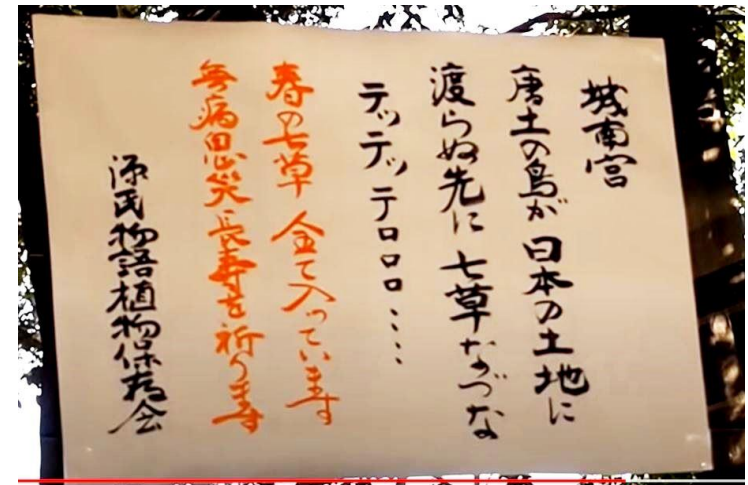 城南宮
唐土の鳥が 日本の土地に
渡らぬ先に 七草なづな
テッテッテロロロ・・・・
春の七草 全て入っています
無病息災 長寿を祈ります
源氏物語植物保存会